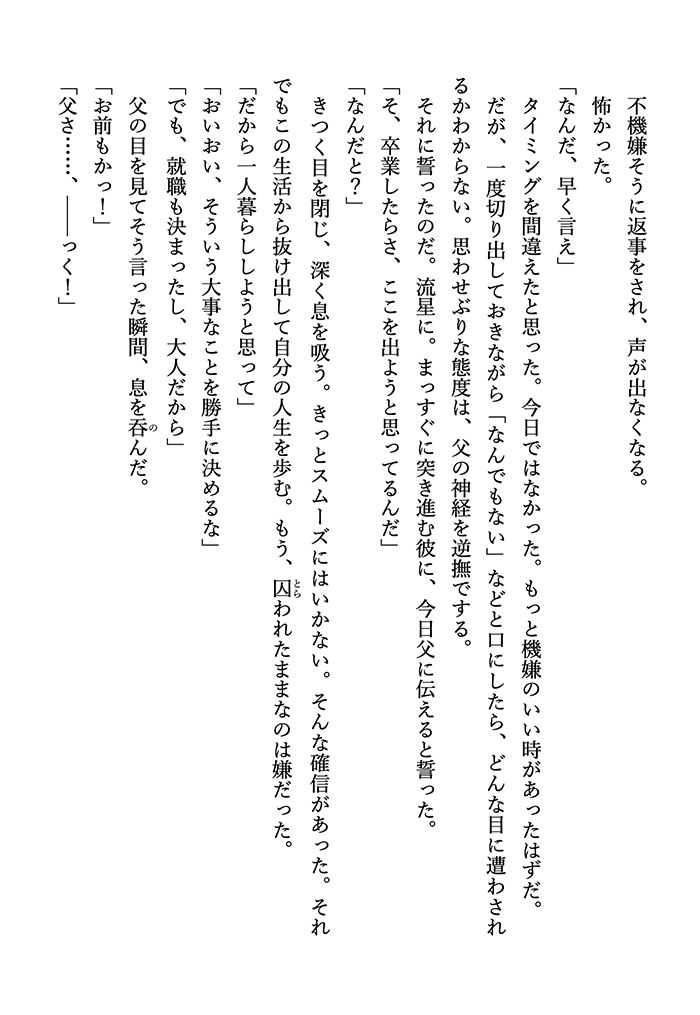 不機嫌そうに返事をされ、声が出なくなる。
怖かった。
「なんだ、早く言え」
タイミングを間違えたと思った。今日ではなかった。もっと機嫌のいい時があったはずだ。
だが、一度切り出しておきながら「なんでもない」などと口にしたら、どんな目に遭わされ
るかわからない。思わせぶりな態度は、父の神経を逆撫でする。
それに誓ったのだ。流星に。まっすぐに突き進む彼に、今日父に伝えると誓った。
「そ、卒業したらさ、ここを出ようと思ってるんだ」
「なんだと？」
きつく目を閉じ、深く息を吸う。きっとスムーズにはいかない。そんな確信があった。それ
でもこの生活から抜け出して自分の人生を歩む。もう、囚われたままなのは嫌だった。
とら
「だから一人暮らししようと思って」
「おいおい、そういう大事なことを勝手に決めるな」
「でも、就職も決まったし、大人だから」
父の目を見てそう言った瞬間、息を呑んだ。
の
「お前もかっ！」
「父さ……、――っく！」